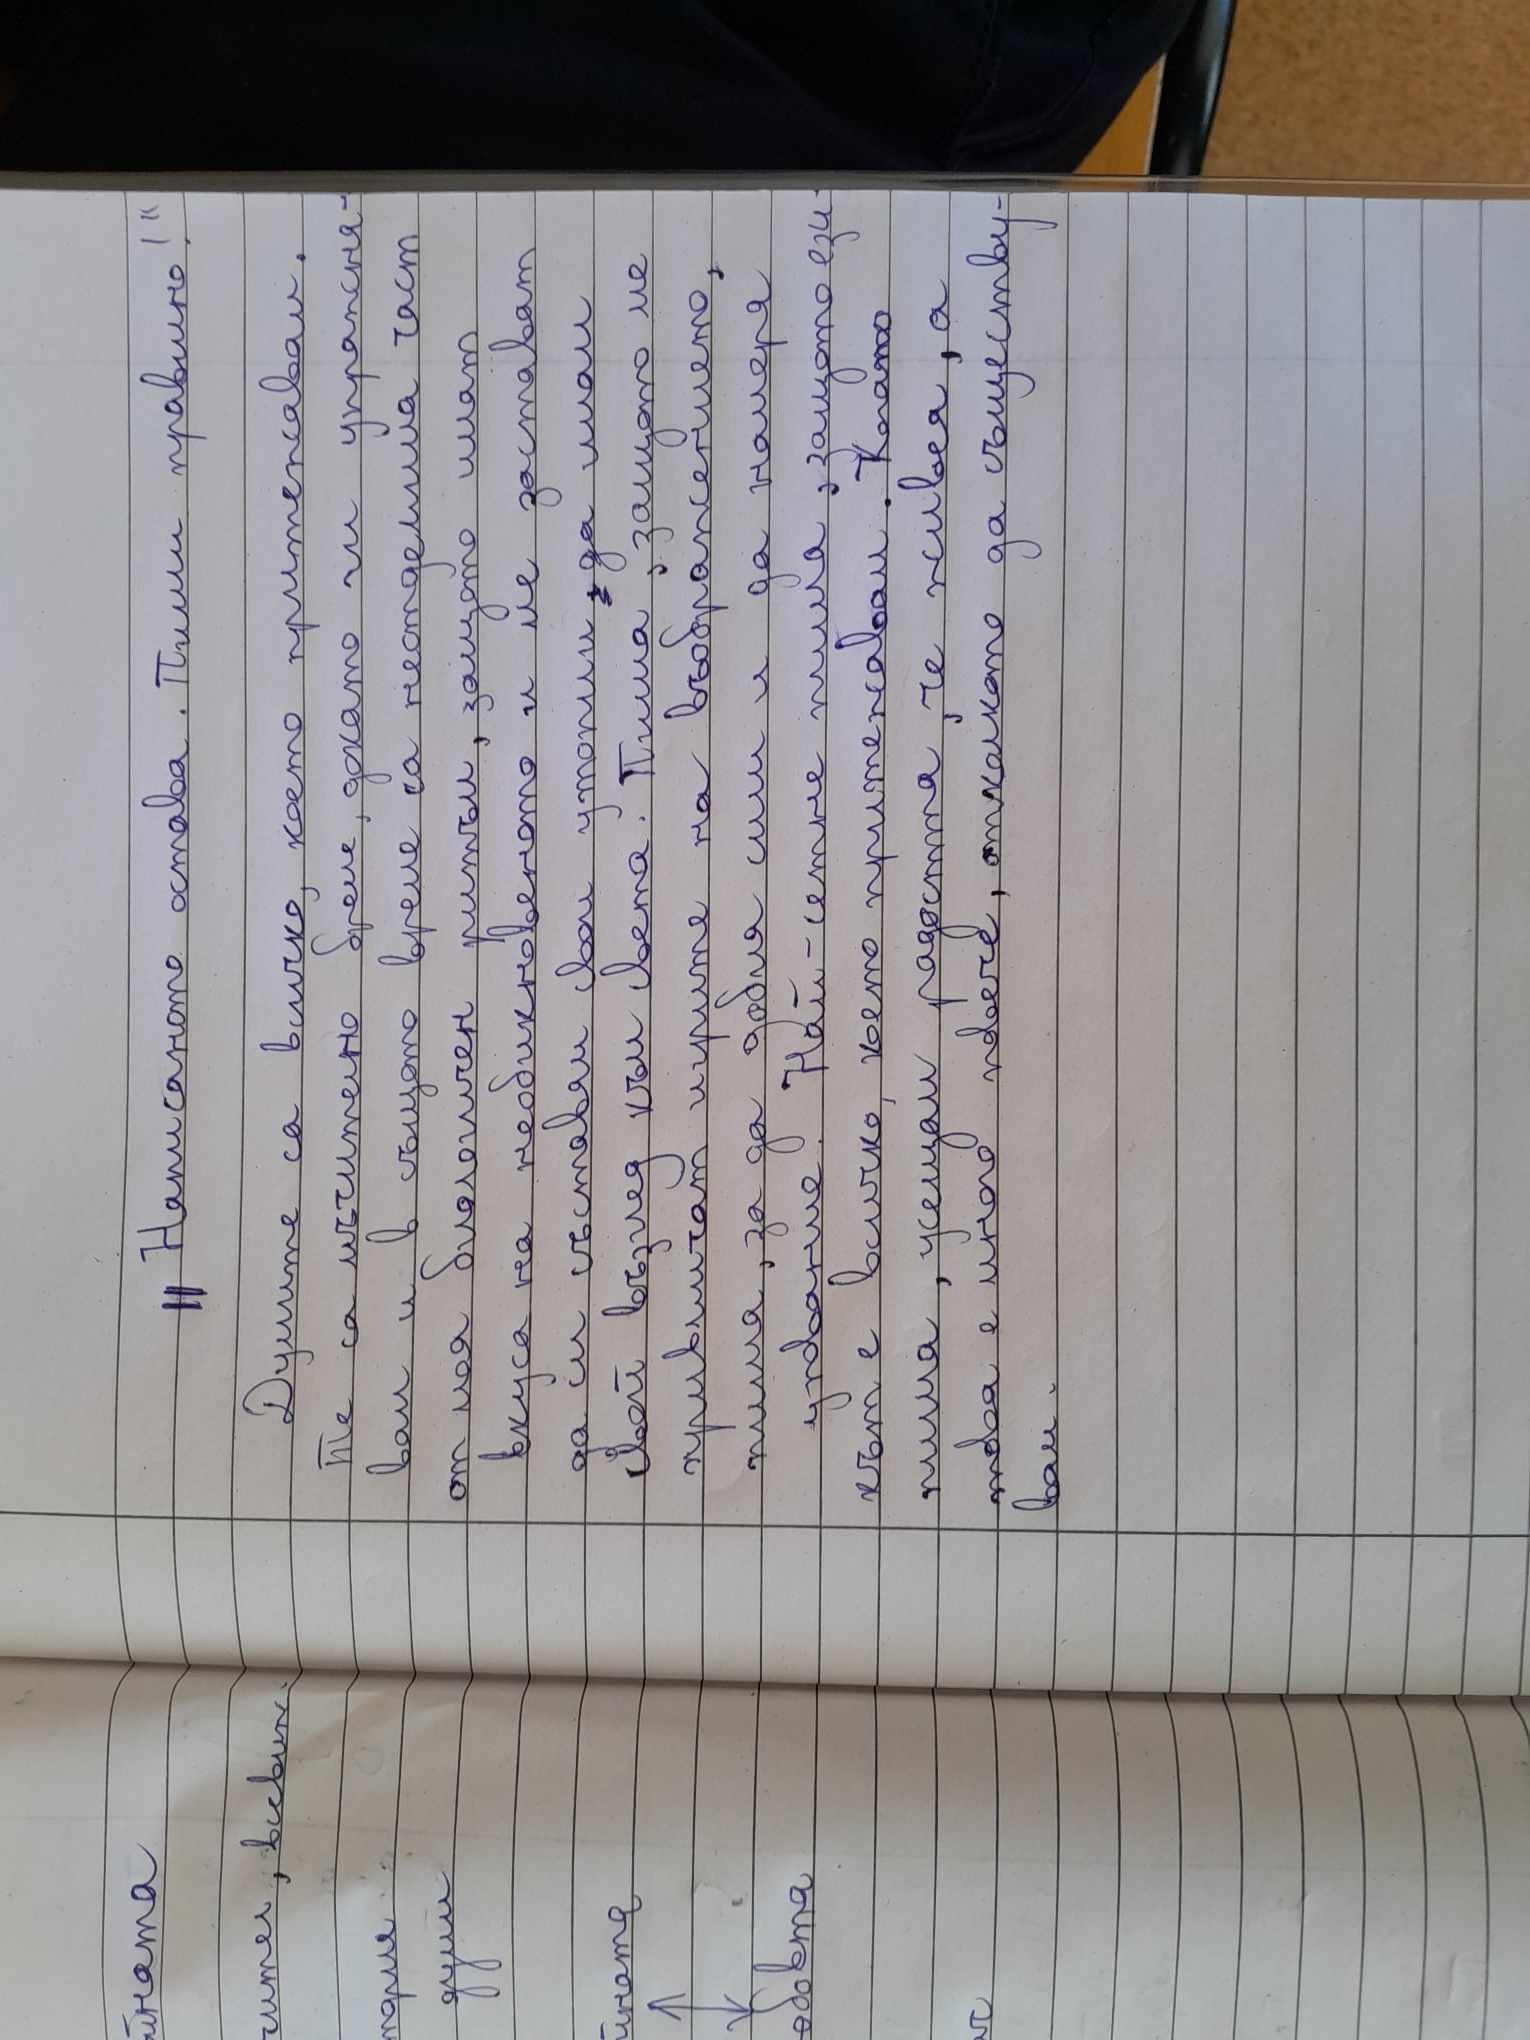 "Написаното остава. Пиши правилно!"
Думите са всичко, което притежавам.
Те са мъчително бреме, докато ги упражня-
вам и в същото време са неотделима част
от моя биологичен ритъм, защото имат
вкуса на необикновеното и ме заставят
да си съставям свои утопии, да имам
свой възглед към света. Пиша, защото ме
привличат игрите на въображението,
пиша, за да добия сили и да намеря
упование. Най-сетне пиша, защото ези-
кът е всичко, което притежавам. Когато
пиша, усещам радостта, че живея, а
това е много повече, отколкото да съществу-
вам.
йната
чител, всевиж.
тория
думи
йната
↑
↓
обовта